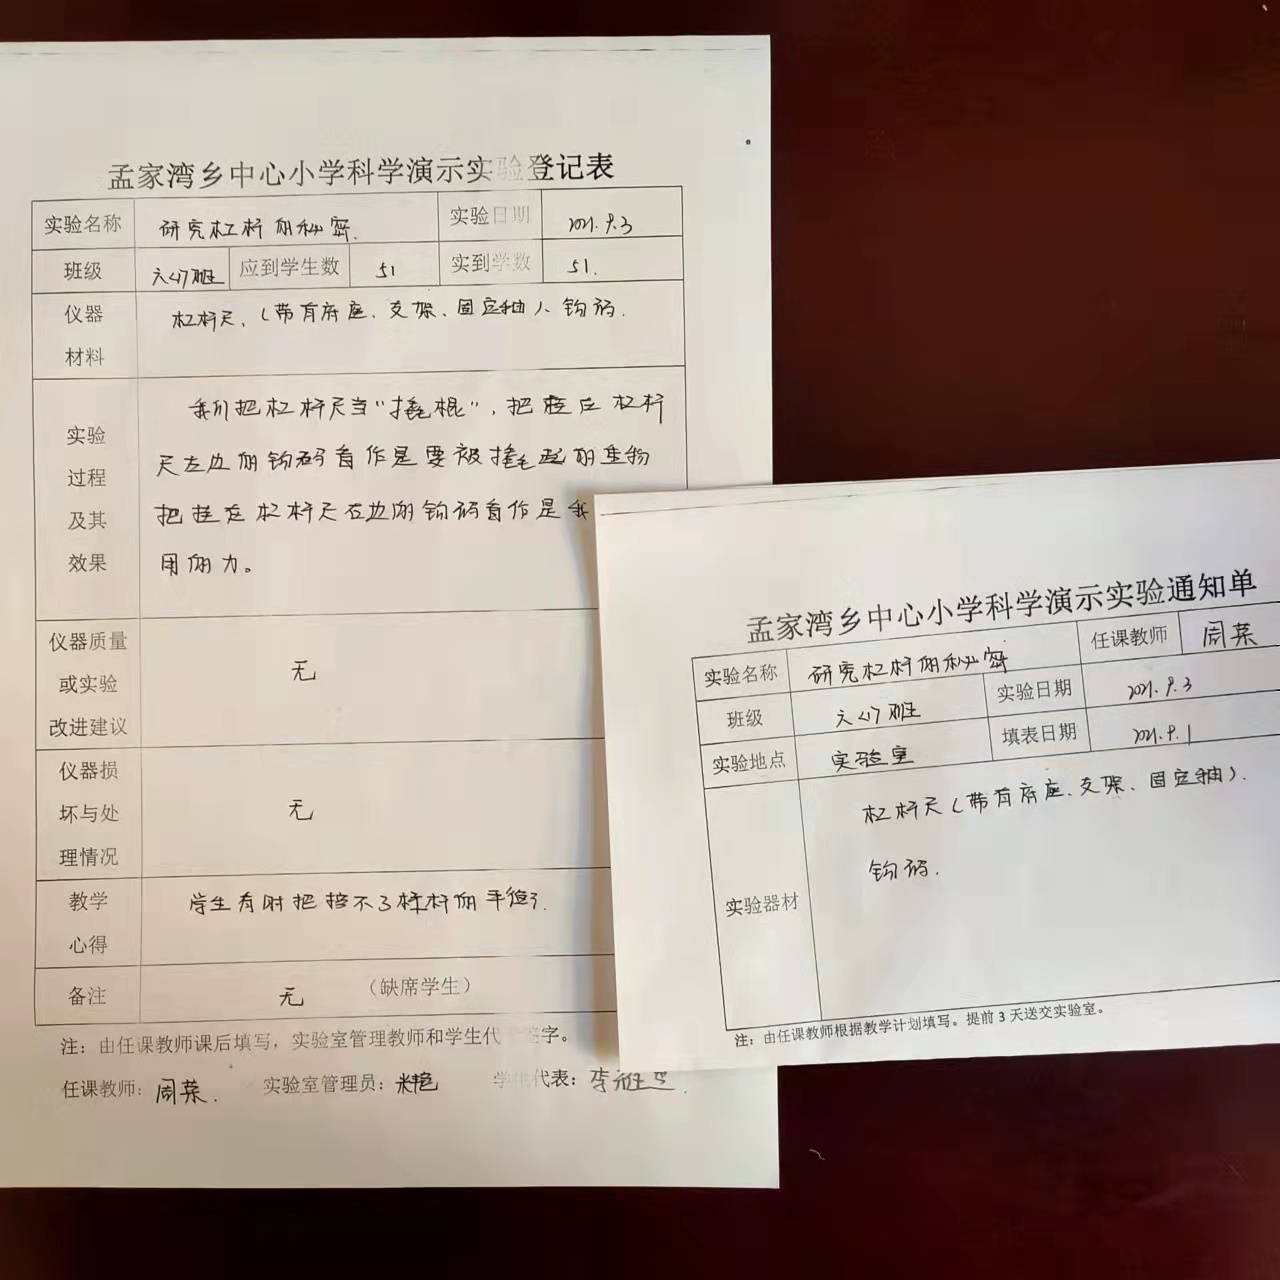 孟家湾乡中心小学科学演示实验登记表
实验名称 研究杠杆的秘密. 实验日期 2021.9.3
班级 六<4>班 应到学生数 51 实到学数 51.
仪器材料 杠杆尺、(带有底座、支架、固定轴)、钩码.
实验过程及其效果
我们把杠杆尺当“撬棍”,把挂在杠杆
尺左边的钩码看作是要被撬起的重物
把挂在杠杆尺右边的钩码看作是我
用的力。
仪器质量或实验改进建议 无
仪器损坏与处理情况 无
教学心得 学生有时把控不了杠杆的平衡.
备注 无 (缺席学生)
注:由任课教师课后填写,实验室管理教师和学生代 签字。
任课教师:周菜. 实验室管理员: 学生代表:
孟家湾乡中心小学科学演示实验通知单
实验名称 研究杠杆的秘密 任课教师 周菜
班级 六<4>班 实验日期 2021.9.3
实验地点 实验室 填表日期 2021.9.1
实验器材
杠杆尺(带有底座、支架、固定轴).
钩码.
注:由任课教师根据教学计划填写。提前3天送交实验室。